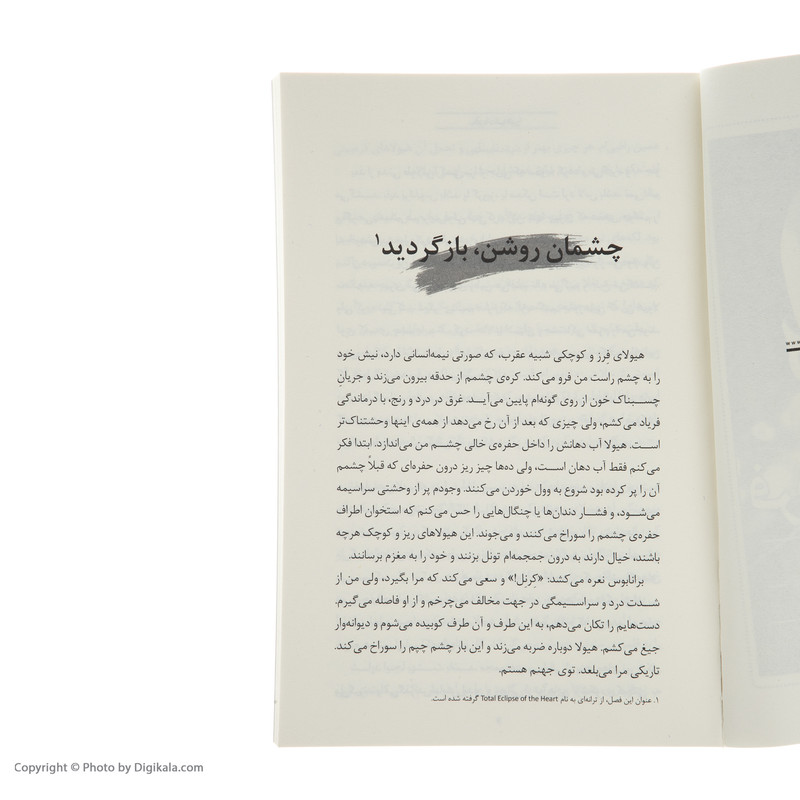 چشمان روشن، بازگردید۱
هیولای فرز و کوچکی شبیه عقرب، که صورتی نیمه‌انسانی دارد، نیش خود
را به چشم راست من فرو می‌کند. کره‌ی چشمم از حدقه بیرون می‌زند و جریانِ
چسبناک خون از روی گونه‌ام پایین می‌آید. غرق در درد و رنج، با درماندگی
فریاد می‌کشم، ولی چیزی که بعد از آن رخ می‌دهد از همه‌ی اینها وحشتناک‌تر
است. هیولا آب دهانش را داخل حفره‌ی خالی چشم من می‌اندازد. ابتدا فکر
می‌کنم فقط آب دهان است، ولی ده‌ها چیز ریز درون حفره‌ای که قبلاً چشمم
آن را پر کرده بود شروع به وول خوردن می‌کنند. وجودم پر از وحشتی سراسیمه
می‌شود، و فشار دندان‌ها یا چنگال‌هایی را حس می‌کنم که استخوان اطراف
حفره‌ی چشمم را سوراخ می‌کنند و می‌جوند. این هیولاهای ریز و کوچک هرچه
باشند، خیال دارند به درون جمجمه‌ام تونل بزنند و خود را به مغزم برسانند.
برانابوس نعره می‌کشد: «کرنل!» و سعی می‌کند که مرا بگیرد، ولی من از
شدت درد و سراسیمگی در جهت مخالف می‌چرخم و از او فاصله می‌گیرم.
دست‌هایم را تکان می‌دهم، به این طرف و آن طرف کوبیده می‌شوم و دیوانه‌وار
جیغ می‌کشم. هیولا دوباره ضربه می‌زند و این بار چشم چپم را سوراخ می‌کند.
تاریکی مرا می‌بلعد. توی جهنم هستم.
۱. عنوان این فصل، از ترانه‌ای به نام Total Eclipse of the Heart گرفته شده است.
Copyright © Photo by Digikala.com